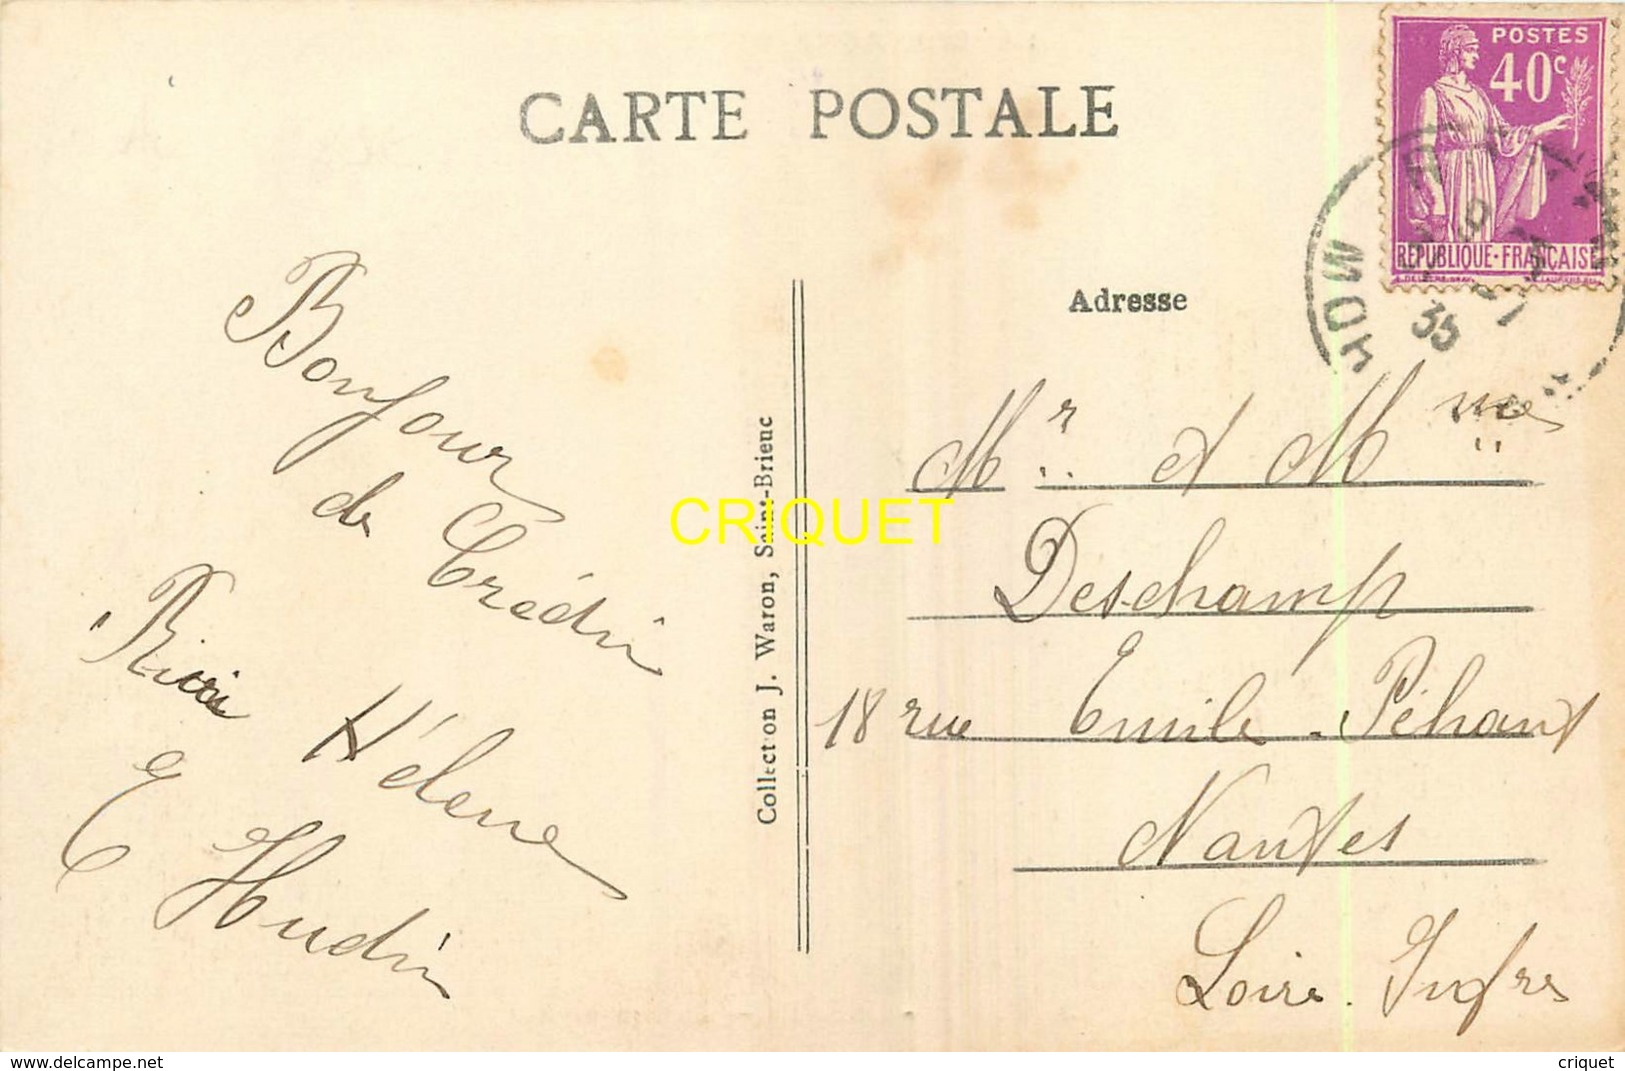 CARTE POSTALE
POSTES
40c
REPUBLIQUE-FRANÇAISE
35
MOR
Adresse
Bonjour
de Crédin
Hélène
E Hudin
Collection J. Waron, Saint-Brieuc
CRIQUET
Mr et Mme
Deschamp
18 rue Emile-Péhant
Nantes
Loire-Infre
www.delcampe.net
criquet